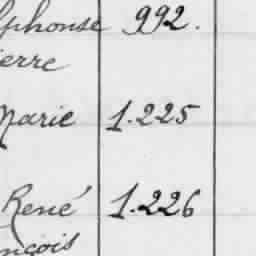 lphonse 992.
ierre
Marie 1.225
René 1.226
nçois